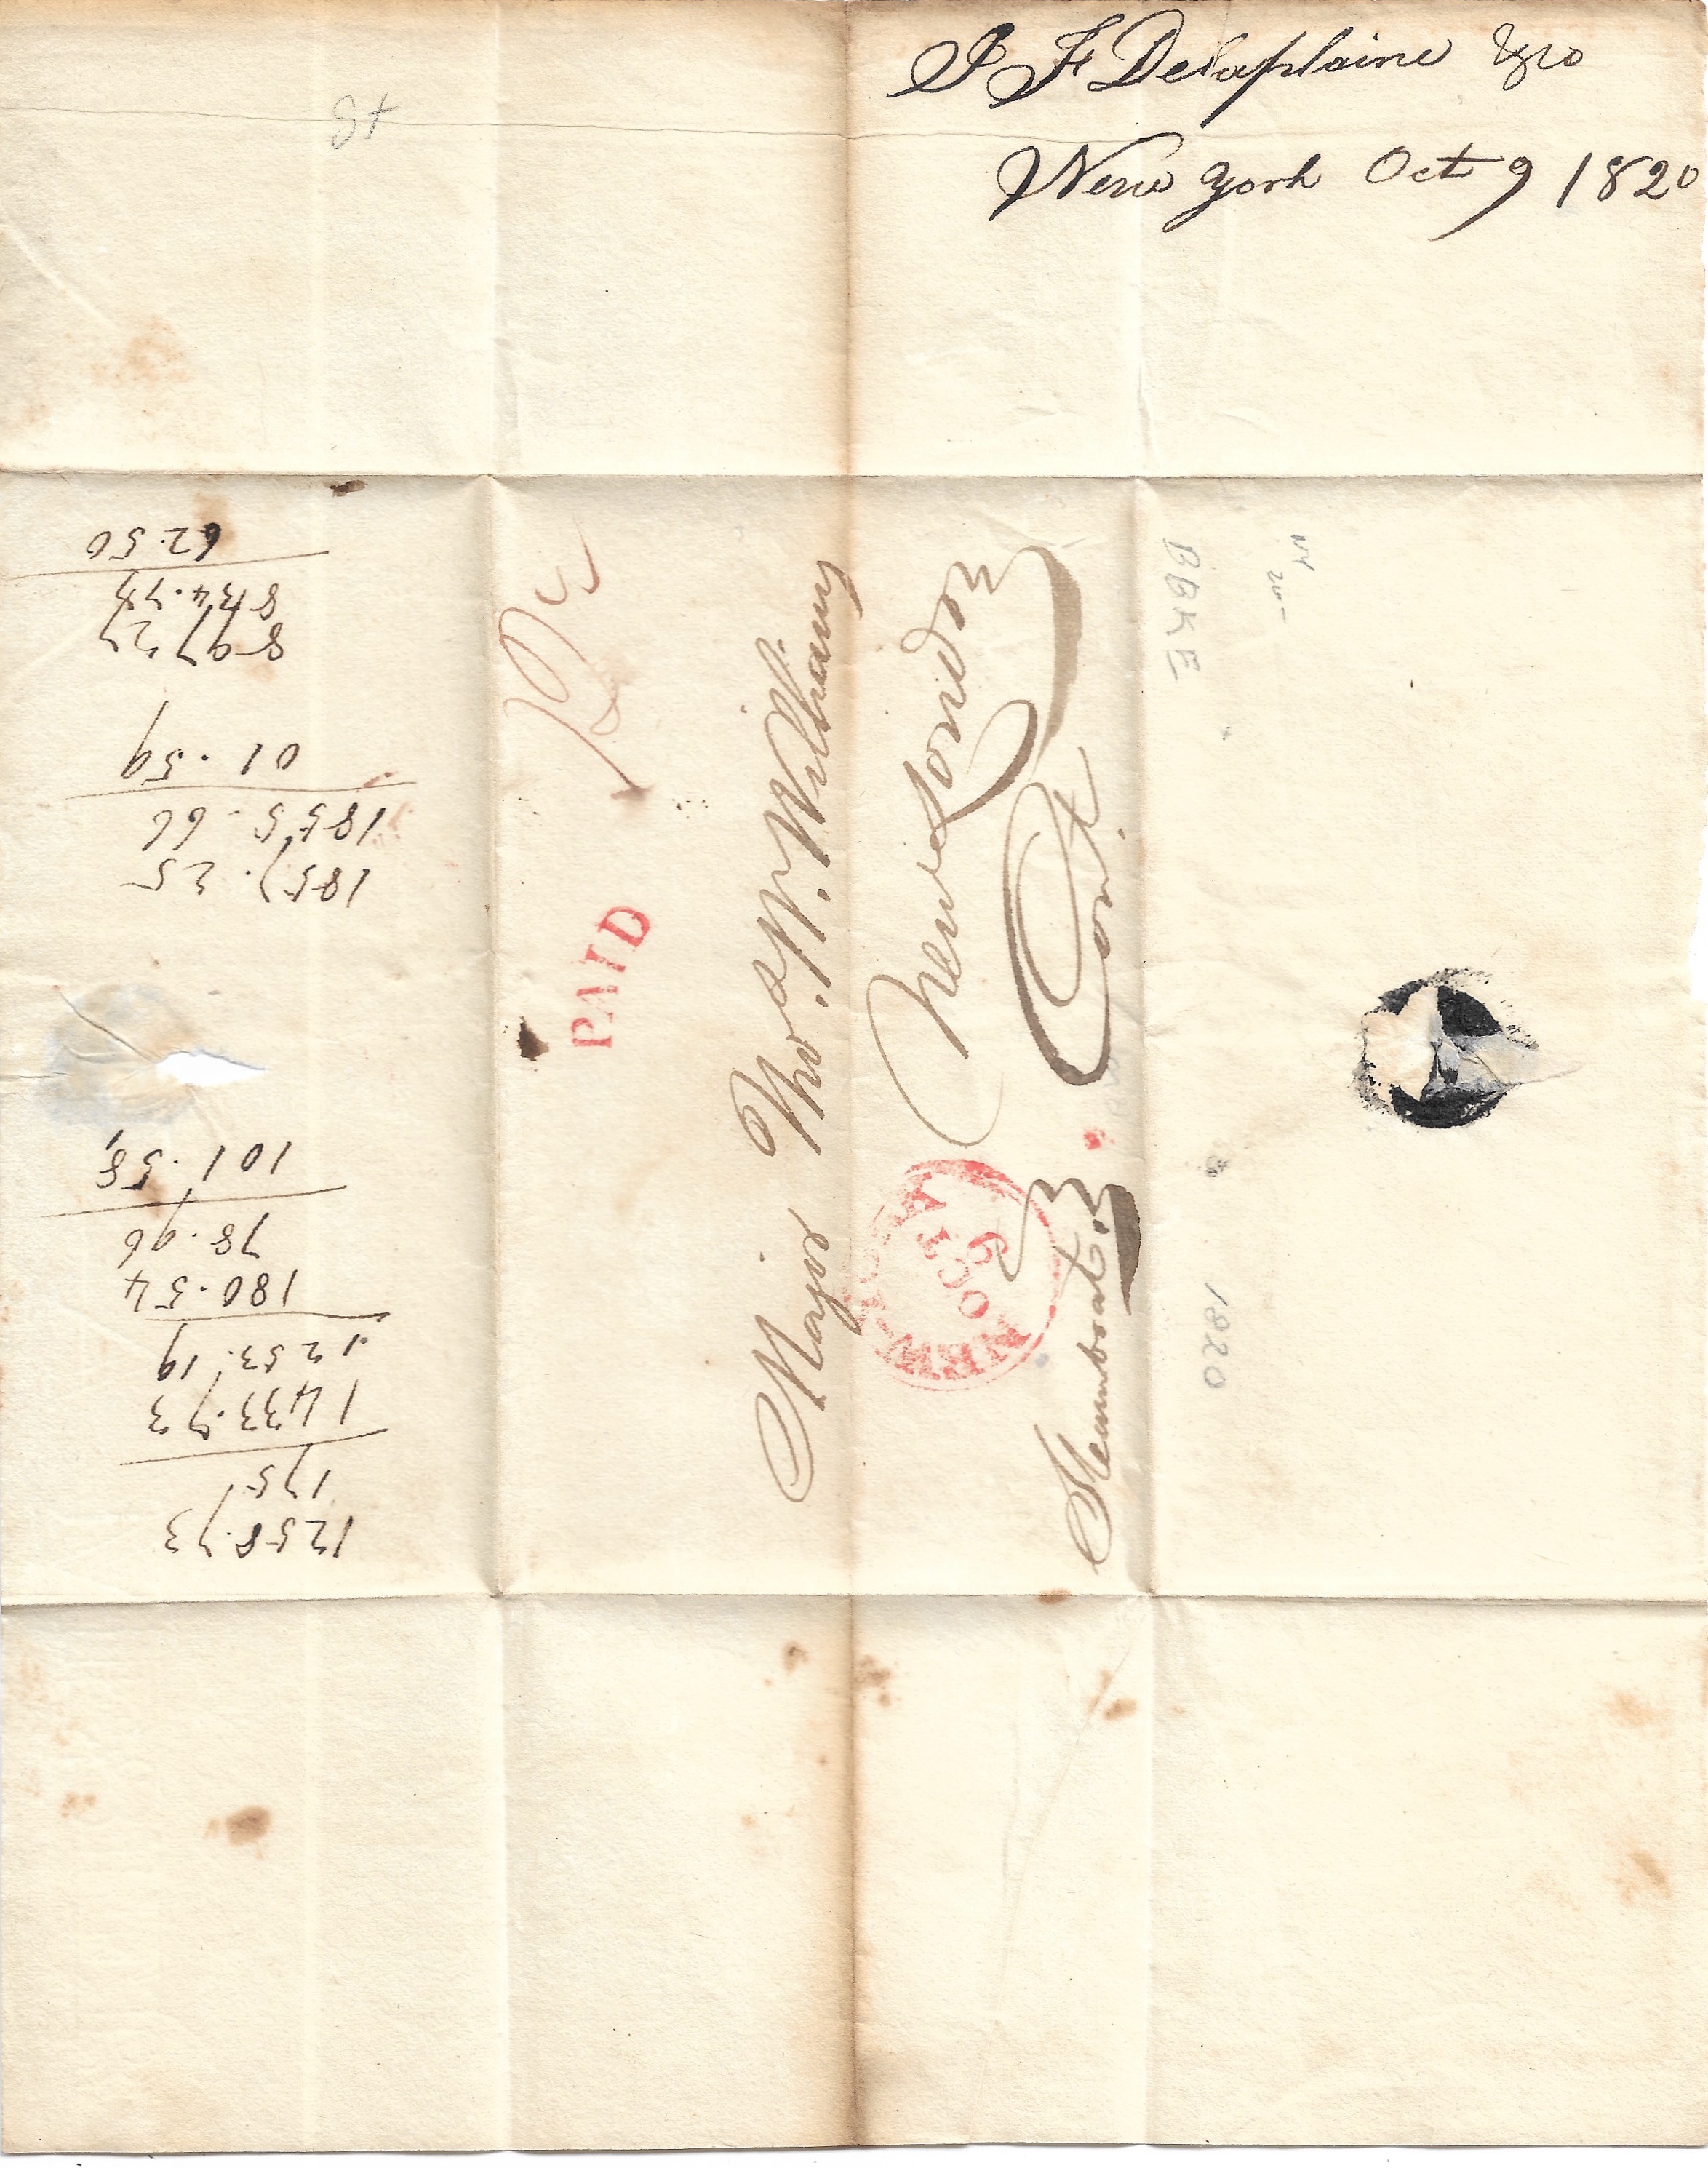 J F Delaplaine & Co
New York Oct 9 1820
PAID
Major Thos. W. Williams
New London
Cont.
Steamboat
NEW-YORK
OCT
9
BBKE
NY
20-
1820
1258.73
175
1433.73
1253.19
180.54
78.96
101.58
1857.25
1855.66
01.59
897.27
834.77
62.50